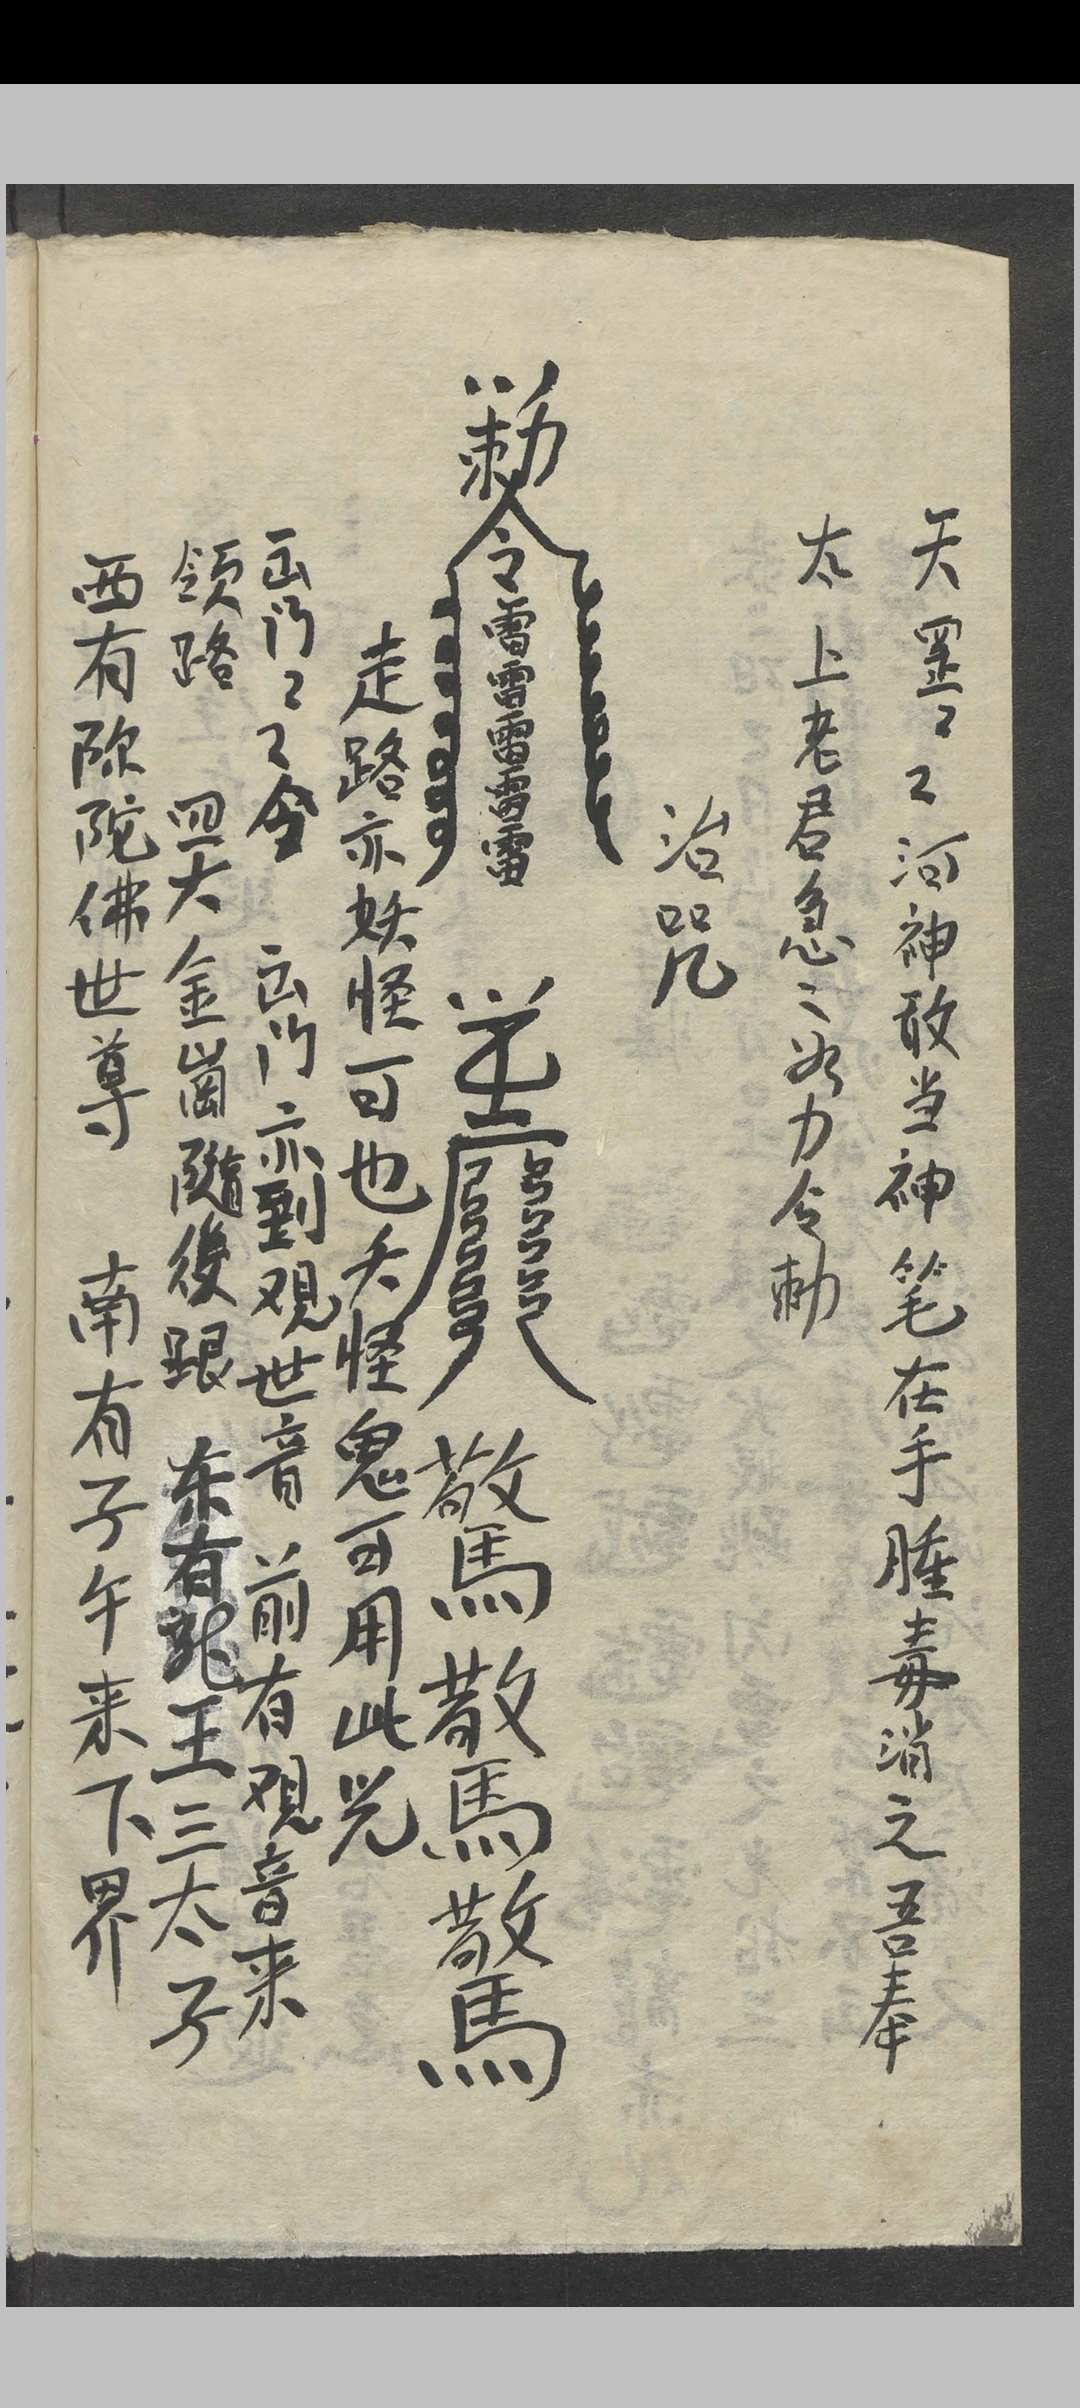 天罡〻〻河神敢当神笔在手腫毒消之吾奉
太上老君急〻如力令勅
治咒
勅令雷雷雷雷雷
驚驚驚
走路亦妖怪可也夭怪鬼可用此咒
門〻〻 門亦到观世音前有观音来
领路 四大金崗隨後跟 东有龙王三太子
西有弥陀佛世尊 南有子午来下界